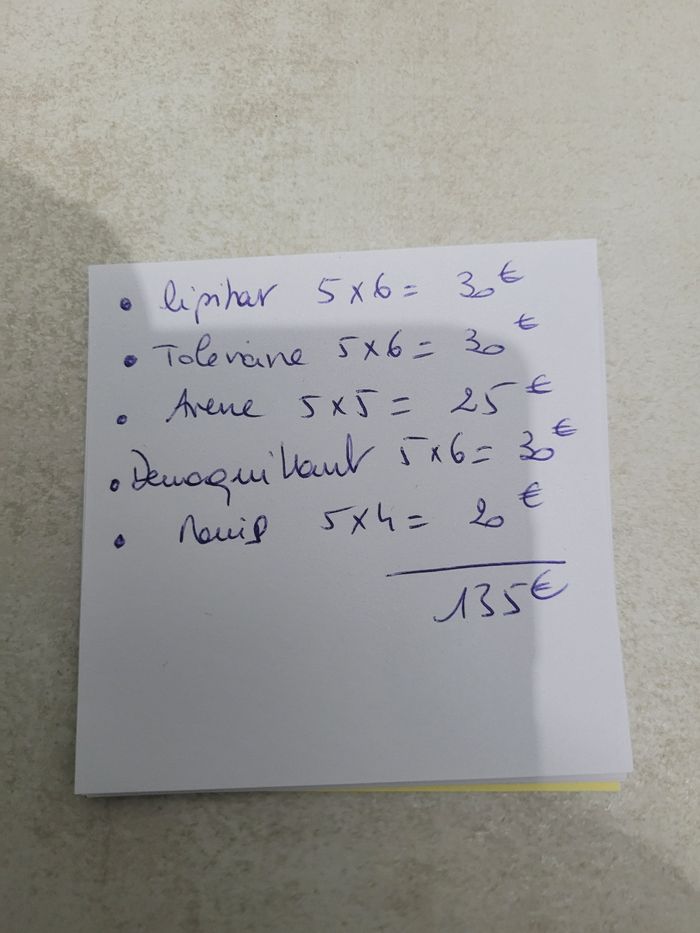 • lipikar 5x6= 30€
• Toleriane 5x6= 30€
• Avene 5x5= 25€
• Demaquillant 5x6= 30€
• 5x4= 20€
135€